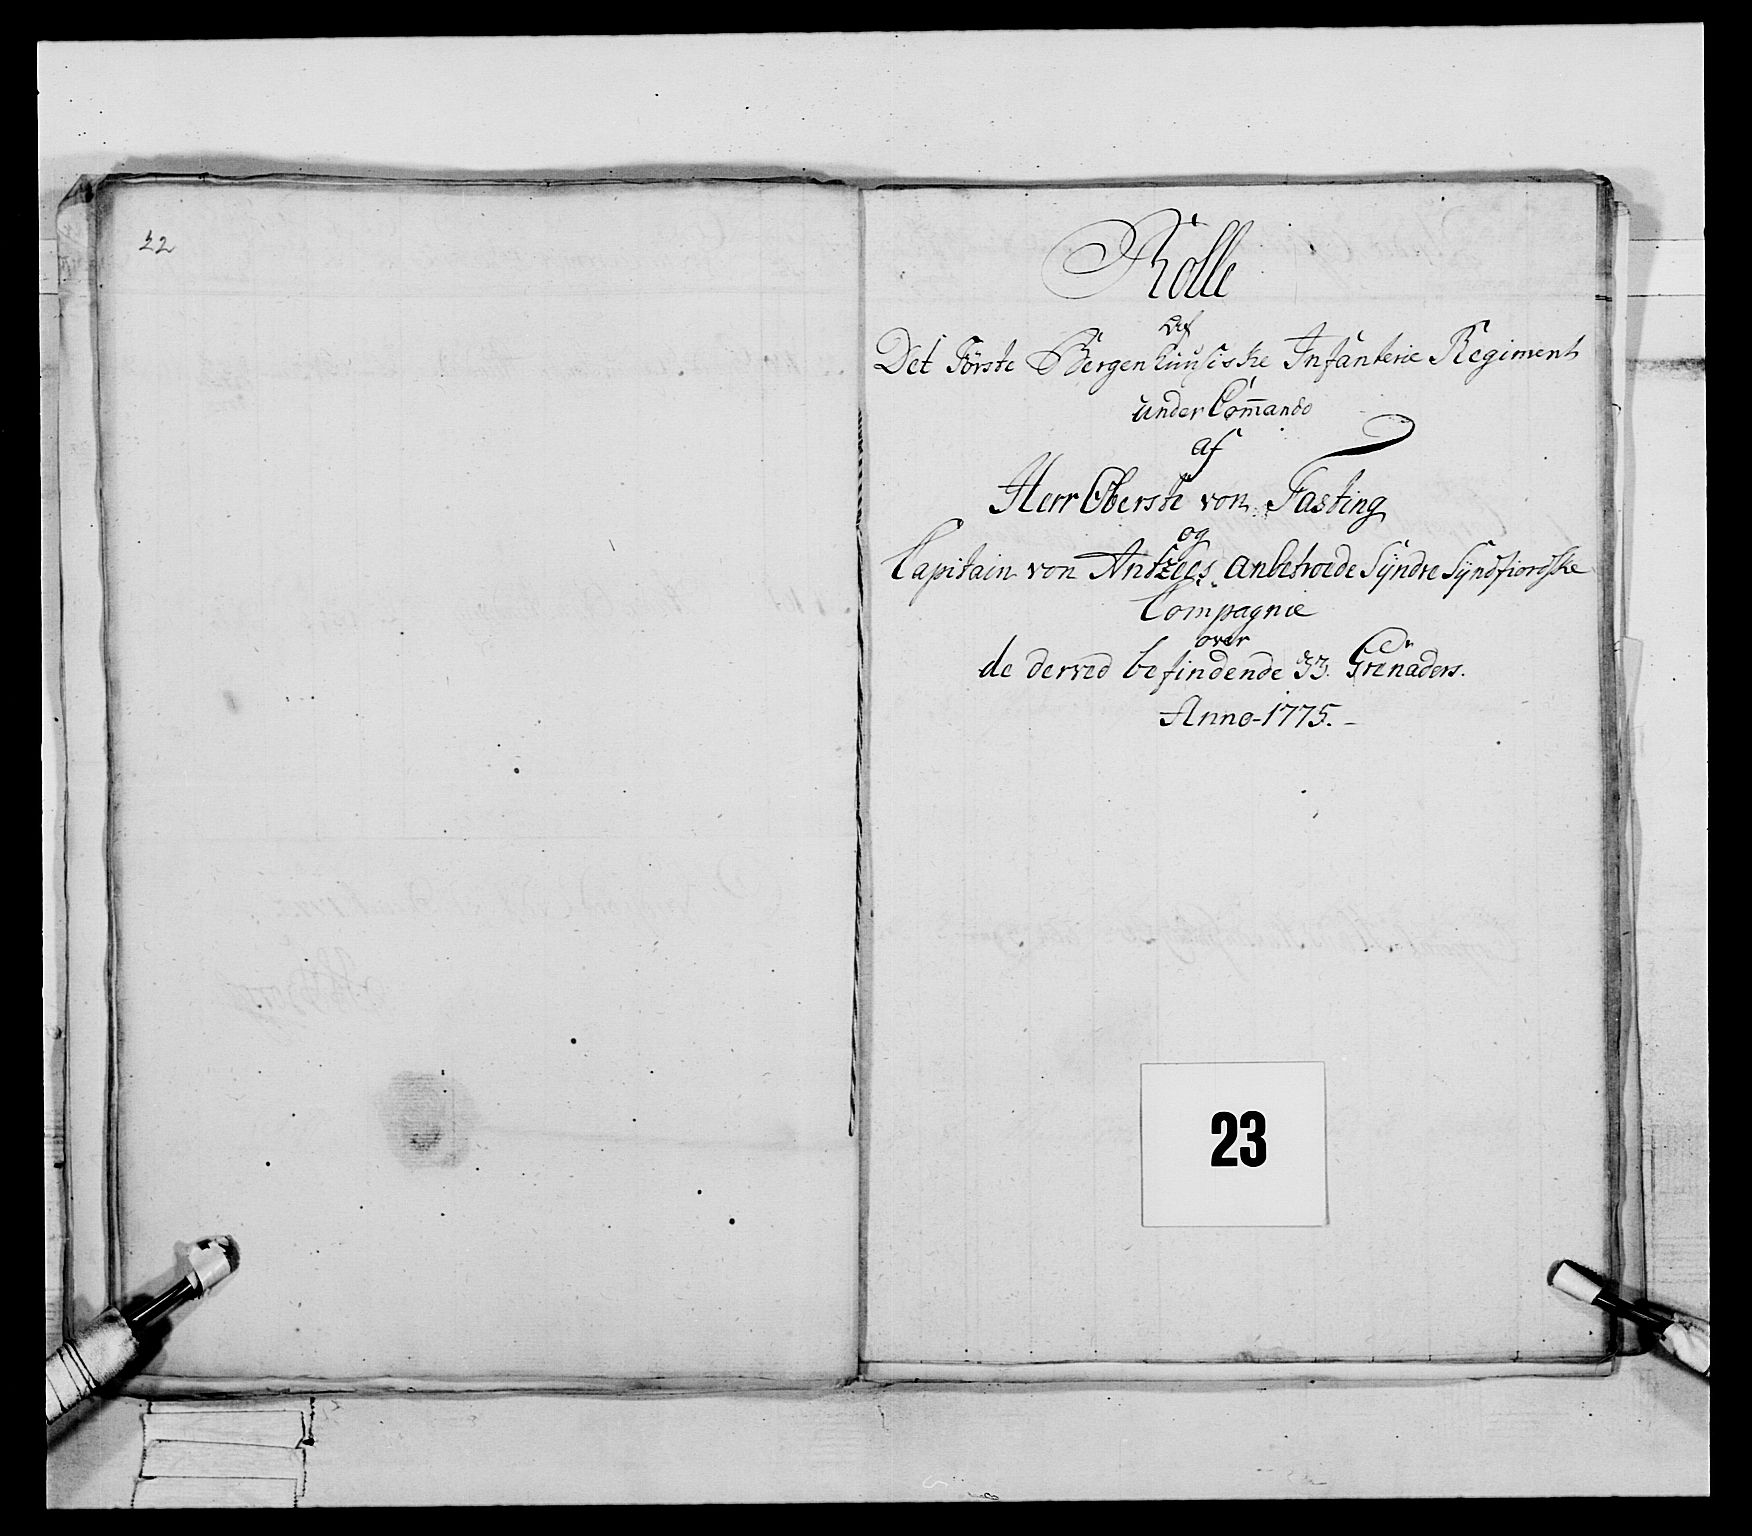 22
Rolle
Af
Det Förste Bergenhuusiske Infanterie Regiment
under Com̄ando
af
Herr Oberste von Fasting
og
Capitain von Antzées anbetroede Syndre Syndfiordske
Compagnie
over
de derved befindende 33. Grenaders.
Anno-1775.-
23